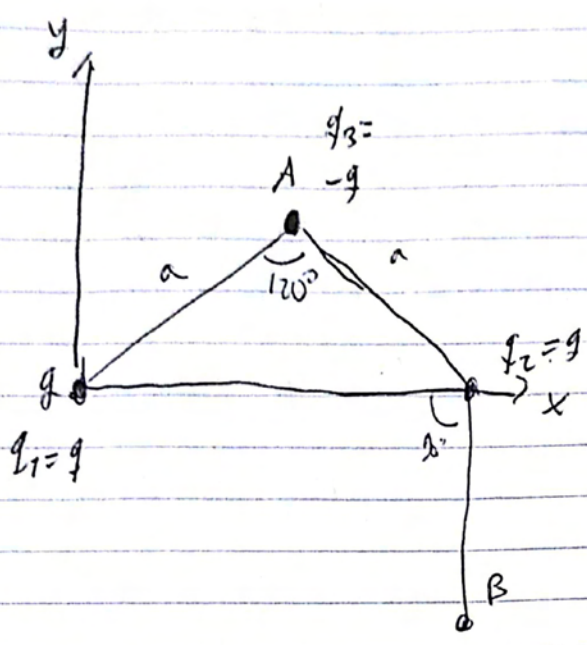 y
q3=
A -q
a
a
120°
q
q2=q
x
q1=q
B